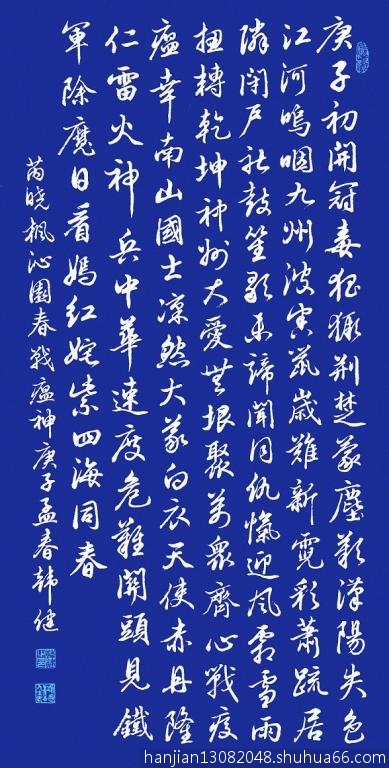 庚子初開冠毒猖獗荆楚蒙塵歎漢陽失色
江河嗚咽九州波害鼠歲難新霓彩蕭疏居
隣閉戶社鼓笙歌未諦聞同仇愾迎風霜雪雨
扭轉乾坤神州大愛無垠聚萬眾齊心戰疫
瘟幸南山國士凛然大義白衣天使赤丹隆
仁雷火神兵中華速度危難關頭見鐵
軍除魔日看嫣紅姹紫四海同春
芮晓枫沁園春戰瘟神庚子孟春韩健
hanjian13082048.shuhua66.com